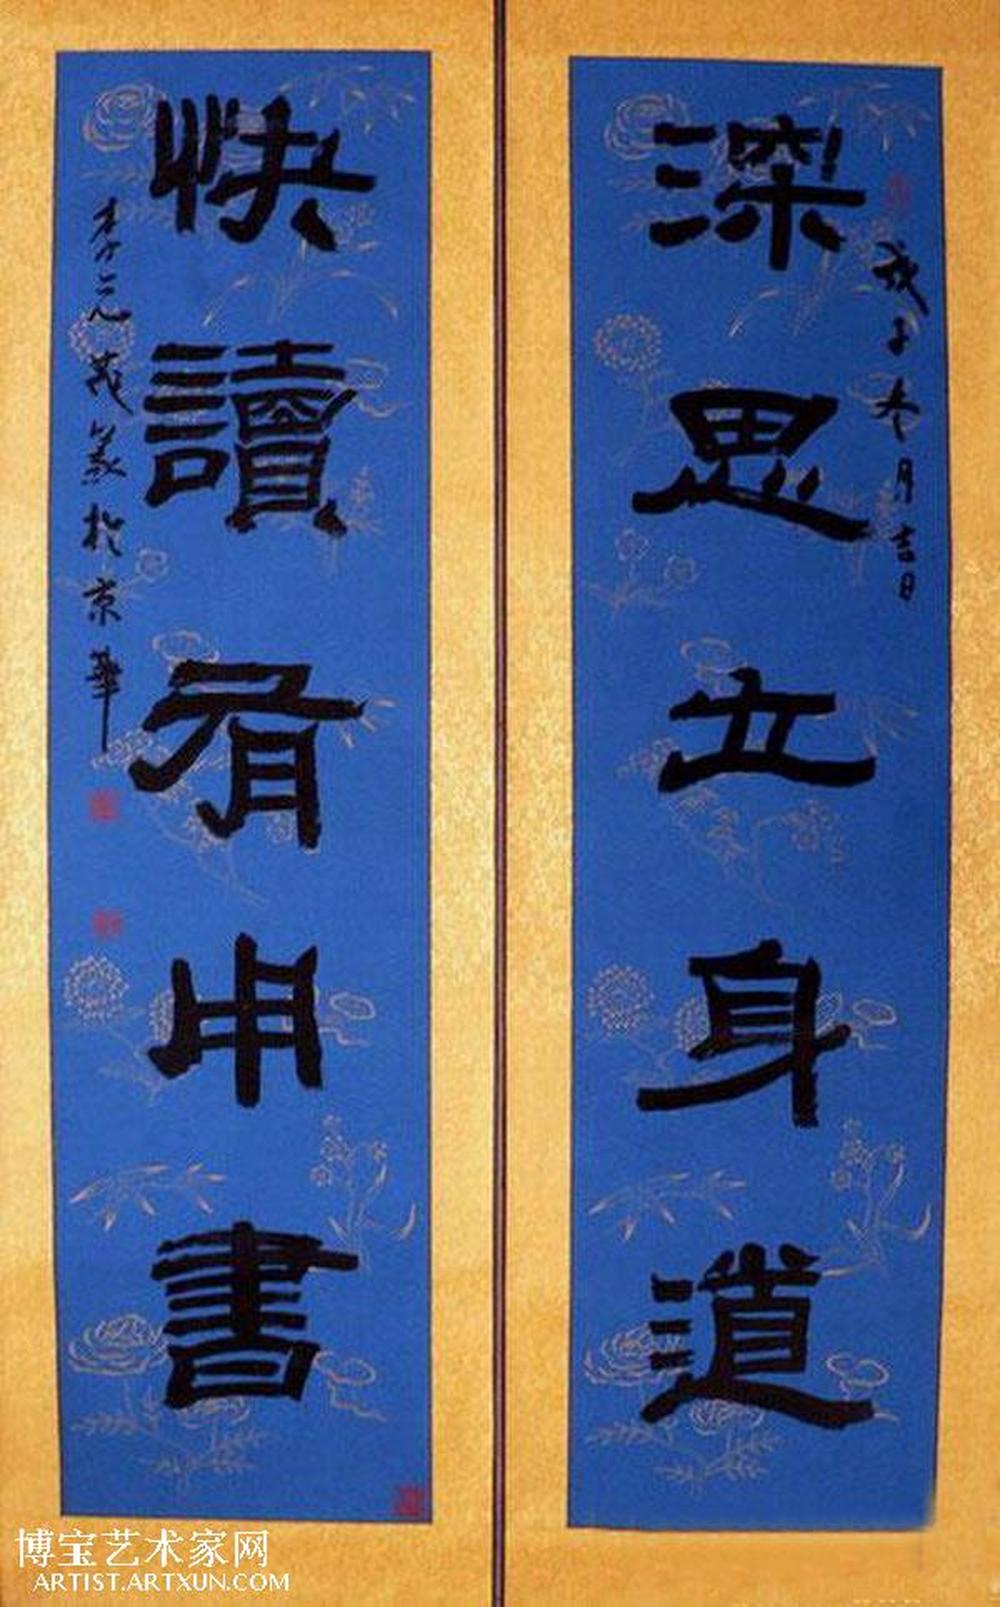 深思立身道
戊子冬月吉日
快讀有用書
李元茂篆於京華
博宝艺术家网
ARTIST.ARTXUN.COM